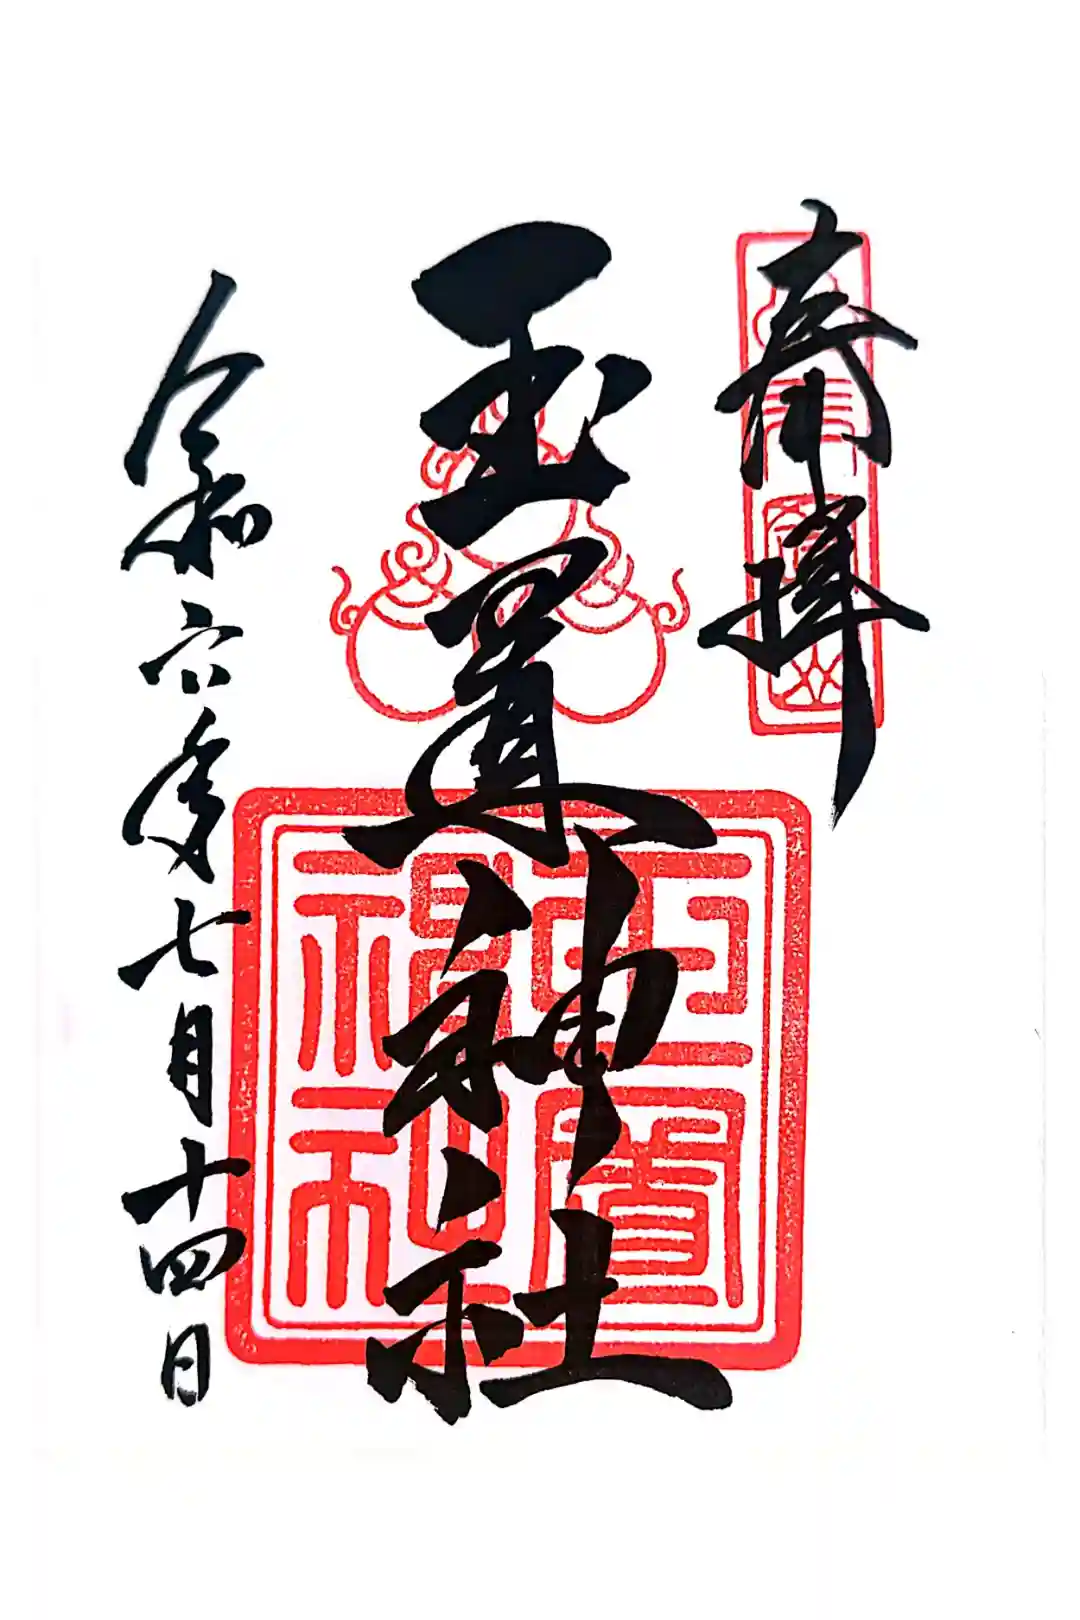 奉拝
玉置神社
令和六年七月十四日
玉置神社